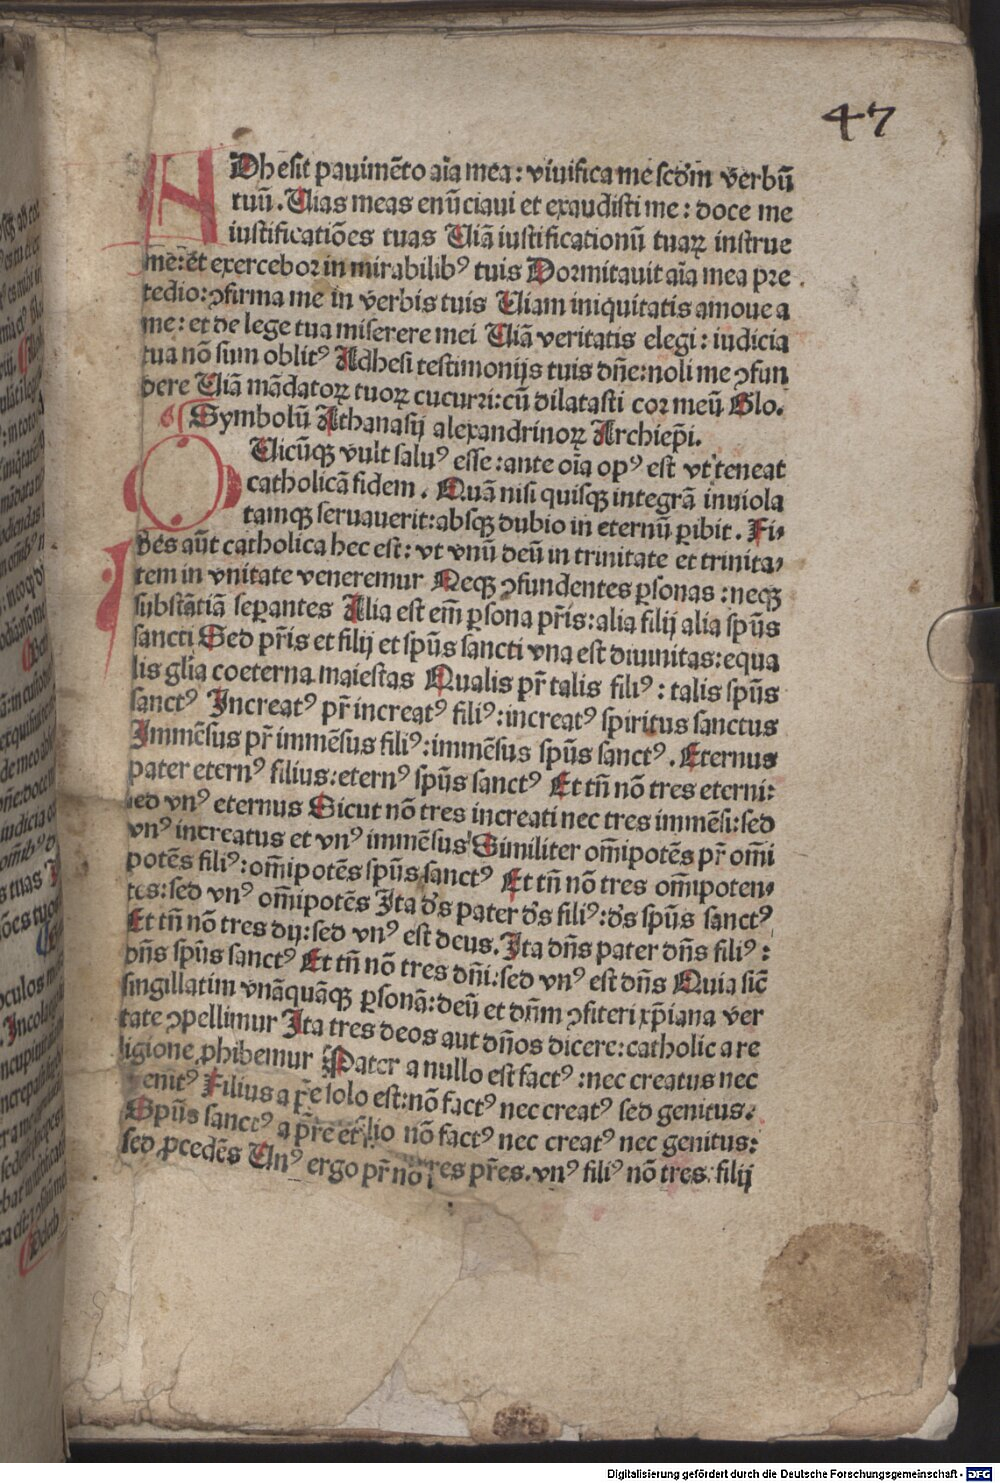 47
ADhesit pauimēto aīa mea: viuifica me scḋm verbū
tuū. Uias meas enūciaui et exaudisti me: doce me
iustificatiōes tuas Uiā iustificationū tuaꝝ instrue
me: et exercebor in mirabilibꝰ tuis Dormitauit aīa mea pre
tedio: ꝯfirma me in verbis tuis Uiam iniquitatis amoue a
me: et de lege tua miserere mei Uiā veritatis elegi: iudicia
tua nō sum oblitꝰ Adhesi testimonijs tuis dn̄e: noli me ꝯfun
dere Uiā mādatoꝝ tuoꝝ cucurri: cū dilatasti cor meū Glo.
Symbolū Athanasij alexandrinoꝝ Archiep̄i.
QUicūqꝫ vult saluꝰ esse: ante oīa opꝰ est vt teneat
catholicā fidem. Quā nisi quisqꝫ integrā inuiola
tamqꝫ seruauerit: absqꝫ dubio in eternū ꝑibit. Fi⸗
des aūt catholica hec est: vt vnū deū in trinitate et trinita⸗
tem in vnitate veneremur Neqꝫ ꝯfundentes ꝑsonas: neqꝫ
substātiā seꝑantes Alia est em̄ ꝑsona pr̄is: alia filij alia sp̄us
sancti Sed pr̄is et filij et sp̄us sancti vna est diuinitas: equa
lis glīa coeterna maiestas Qualis pr̄ talis filiꝰ: talis sp̄us
sanctꝰ Increatꝰ pr̄ increatꝰ filiꝰ: increatꝰ spiritus sanctus
Immēsus pr̄ immēsus filiꝰ: immēsus sp̄us sanctꝰ. Eternus
pater eternꝰ filius: eternꝰ sp̄us sanctꝰ Et tn̄ nō tres eterni:
sed vnꝰ eternus Sicut nō tres increati nec tres immēsi: sed
vnꝰ increatus et vnꝰ immēsus Similiter om̄ipotēs pr̄ om̄i
potēs filiꝰ: om̄ipotēs sp̄us sanctꝰ Et tn̄ nō tres om̄ipoten⸗
tes: sed vnꝰ om̄ipotēs Ita ds̄ pater ds̄ filiꝰ: ds̄ sp̄us sanctꝰ
Et tn̄ nō tres dij: sed vnꝰ est deus. Ita dn̄s pater dn̄s filiꝰ:
dn̄s sp̄us sanctꝰ Et tn̄ nō tres dn̄i: sed vnꝰ est dn̄s Quia sic̄
singillatim vnāquāqꝫ ꝑsonā: deū et dn̄m ꝯfiteri xp̄iana ver
tate ꝯpellimur Ita tres deos aut dn̄os dicere: catholica re
ligione ꝓhibemur Pater a nullo est factꝰ: nec creatus nec
genitꝰ Filius a pr̄e solo est: nō factꝰ nec creatꝰ sed genitus.
Sp̄us sanctꝰ a pr̄e et filio nō factꝰ nec creatꝰ nec genitus:
sed ꝓcedēs Unꝰ ergo pr̄ nō tres pr̄es. vnꝰ filiꝰ nō tres filij
Digitalisierung gefördert durch die Deutsche Forschungsgemeinschaft - DFG